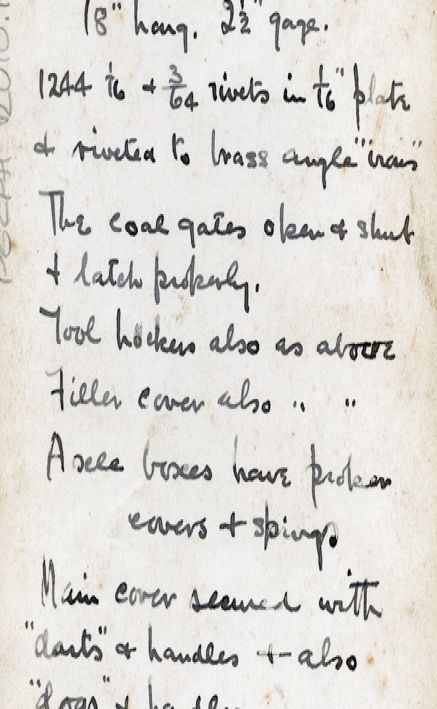 18" long. 2½" gage.
1244 1/16 & 3/64 rivets in 1/16" plate
& riveted to brass angle "irons"
The coal gates open & shut
& latch properly.
Tool lockers also as above
Filler cover also " "
Axle boxes have proper
covers & springs
Main cover secured with
"darts" & handles & also
"dogs" &